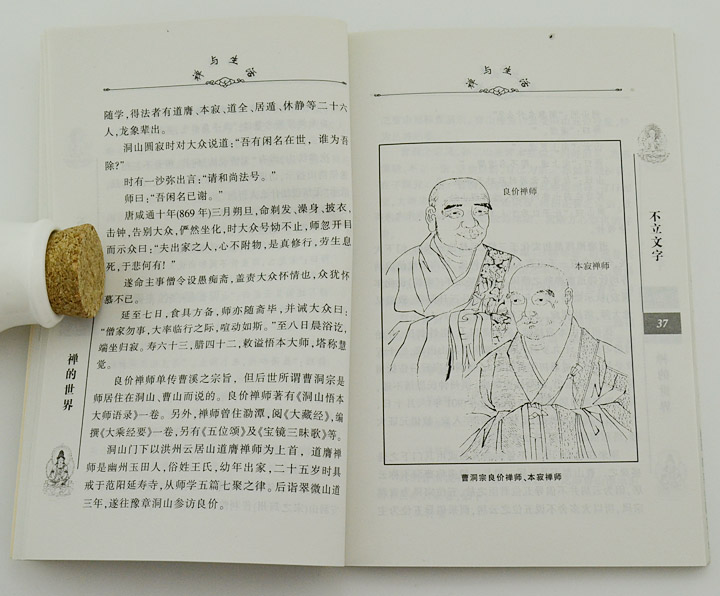 禅与生活
随学，得法者有道膺、本寂、道全、居遁、休静等二十六
人，龙象辈出。
洞山圆寂时对大众说道：“吾有闲名在世，谁为吾
除？”
时有一沙弥出言：“请和尚法号。”
师曰：“吾闲名已谢。”
唐咸通十年(869年)三月朔旦，命剃发、澡身、披衣、
击钟，告别大众，俨然坐化，时大众号恸不止，师忽开目
而示众曰：“夫出家之人，心不附物，是真修行，劳生息
死，于悲何有！”
遂命主事僧令设愚痴斋，盖责大众怀情也，众犹怀
慕不已。
延至七日，食具方备，师亦随斋毕，并诫大众曰：
“僧家勿事，大率临行之际，喧动如斯。”至八日晨浴讫，
端坐归寂。寿六十三，腊四十二，敕谥悟本大师，塔称慧
觉。
良价禅师单传曹溪之宗旨，但后世所谓曹洞宗是
师居住在洞山、曹山而说的。良价禅师著有《洞山悟本
大师语录》一卷。另外，禅师曾住泐潭，阅《大藏经》，编
撰《大乘经要》一卷，另有《五位颂》及《宝镜三昧歌》等。
洞山门下以洪州云居山道膺禅师为上首，道膺禅
师是幽州玉田人，俗姓王氏，幼年出家，二十五岁时具
戒于范阳延寿寺，从师学五篇七聚之律。后诣翠微山道
三年，遂往豫章洞山参访良价。
禅的世界
禅与生活
良价禅师
本寂禅师
曹洞宗良价禅师、本寂禅师
不立文字
37